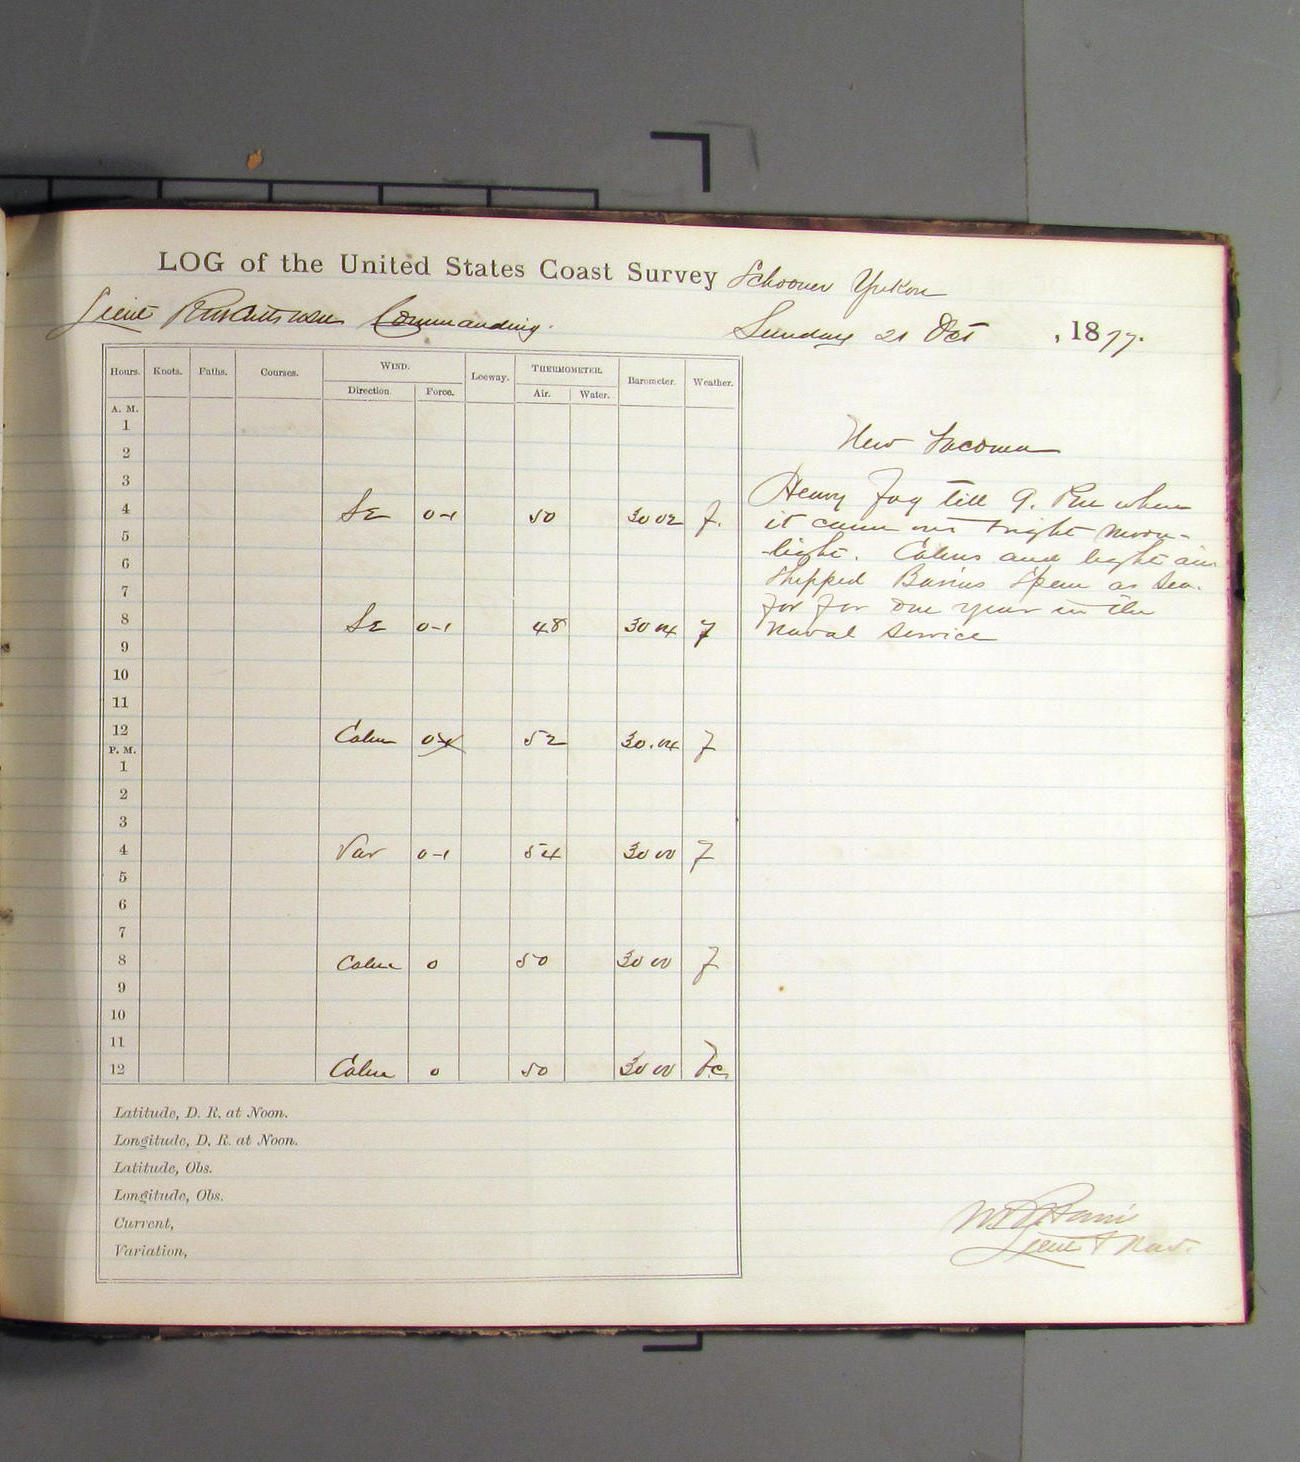 LOG of the United States Coast Survey Schooner Yukon
Lieut Commanding.
Sunday 21 Oct , 1877.
Hours. Knots. Faths. Courses. WIND. Leeway. THERMOMETER. Barometer. Weather.
Direction Force. Air. Water.
A. M.
1
2
3
4 SE 0-1 50 30 02 f.
5
6
7
8 SE 0-1 48 30 04 f
9
10
11
12 Calm 0 52 30.04 f
P. M.
1
2
3
4 Var 0-1 54 30 00 f
5
6
7
8 Calm 0 50 30 00 f
9
10
11
12 Calm 0 50 30 00 fc
Latitude, D. R. at Noon.
Longitude, D. R. at Noon.
Latitude, Obs.
Longitude, Obs.
Current,
Variation,
New Tacoma
Heavy fog till 9. Pm when
it came out bright moon-
light. Calms and light air
Shipped as Sea.
for for one year in the
naval service
Lieut &